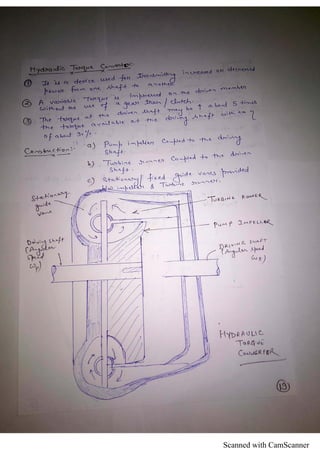 Hydraulic Torque Converter
① It is a device used for transmitting increased or decreased
power from one shaft to another.
② A variable Torque is impressed on the driven member
without the use of a gear train / clutch.
③ The torque at the driven shaft may be ↑ about 5 times
the torque available at the driving shaft with an η
of about 90%.
Construction:- a) Pump impeller coupled to the driving
shaft.
b) Turbine runner coupled to the driven
shaft.
c) Stationary / fixed guide vanes provided
impeller & Turbine runner.
Stationary
guide
vane
TURBINE RUNNER
PUMP IMPELLER
Driving shaft
(Angular
speed
DRIVING SHAFT
(Angular speed
HYDRAULIC
TORQUE
CONVERTER
13
Scanned with CamScanner